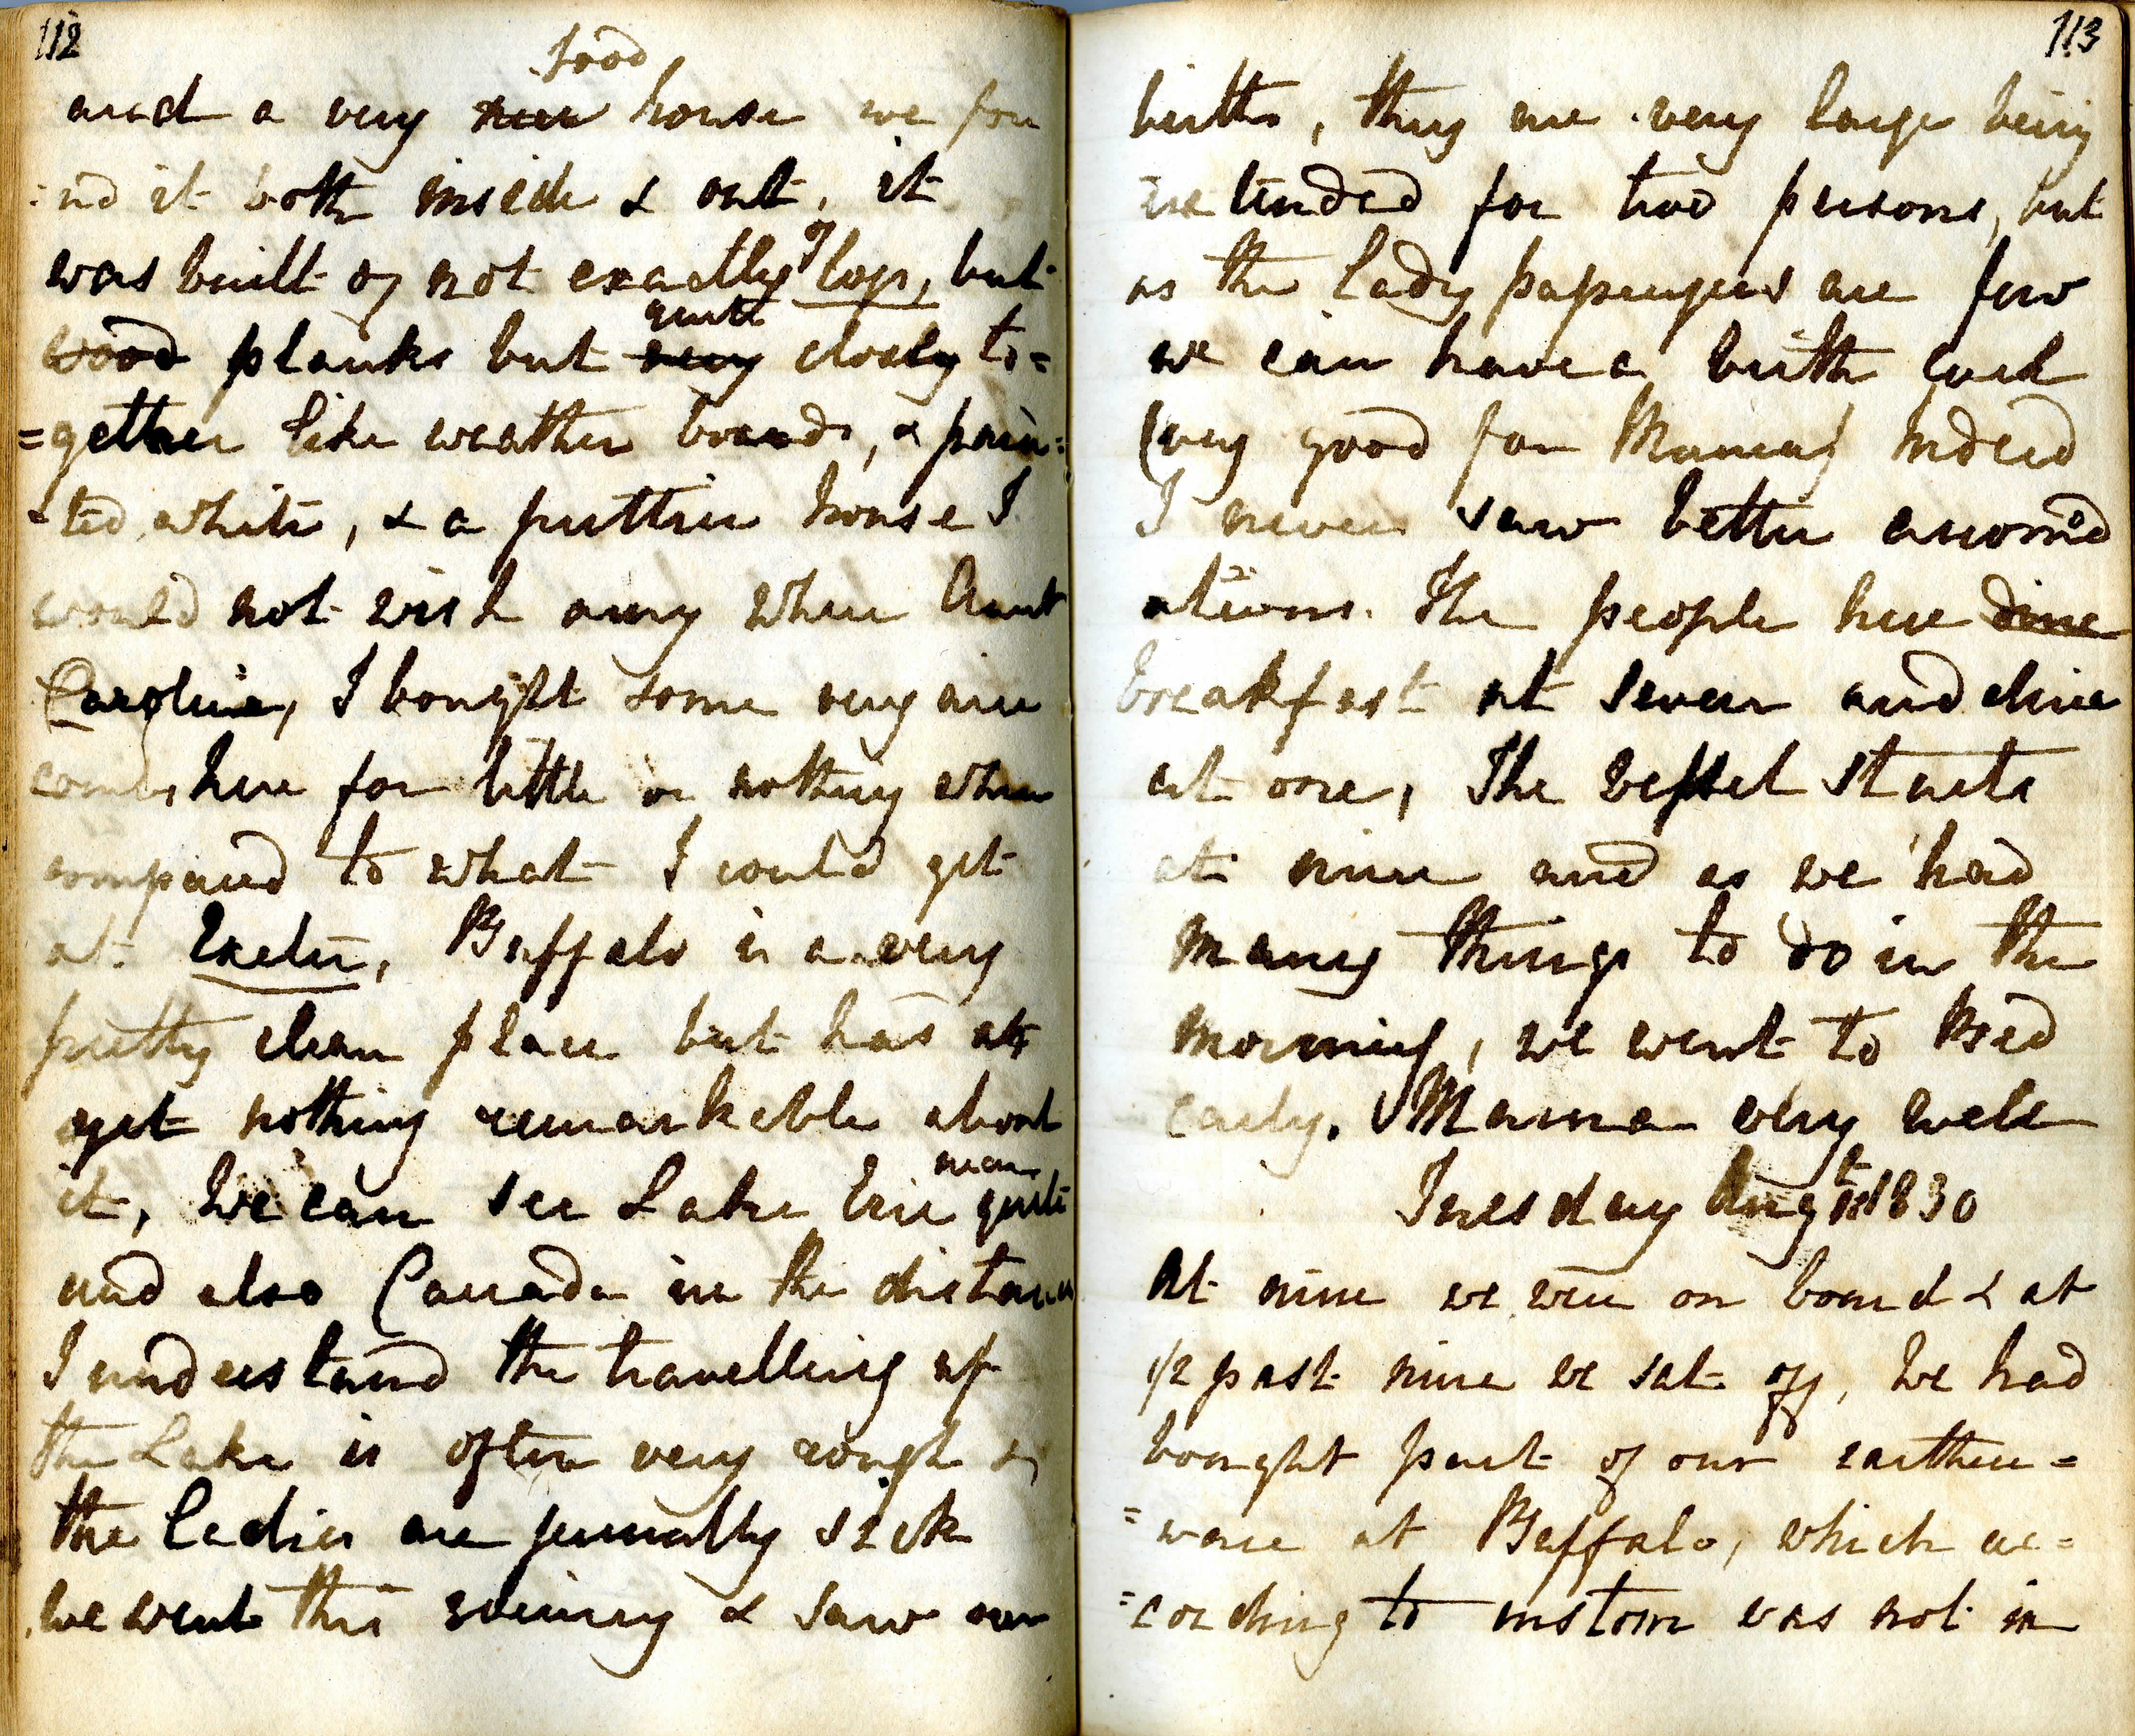 112
good
and a very nice house we fou
=nd it both inside & out, it
of
was built of not exactly logs, but
quite
wood planks but very closely to=
=gether like weather boards, & pain=
=ted white, & a prettier house I
would not wish any where Aunt
Caroline, I bought some very nice
combs here for little or nothing when
compared to what I could get
at Exeter, Buffalo is a very
pretty clean place but has as
yet nothing remarkable about
near
it, We can see Lake Erie quite
and also Canada in the distance
I understand the travelling up
the Lake is often very rough &
the Ladies are generally sick
we went this evening & saw our
113
births, they are very large being
intended for two persons, but
as the Lady passengers are few
we can have a birth each
(very good for Mama) indeed
I never saw better accomod
ations. The people here dine
breakfast at seven and dine
at one, The vessel starts
at nine and as we had
many things to do in the
morning, we went to Bed
early. Mama very well
Tuesday Augt 1830
At nine we were on board & at
1/2 past nine we sat off, We had
bought part of our earthen=
=ware at Buffalo, which ac=
=cording to custom was not in